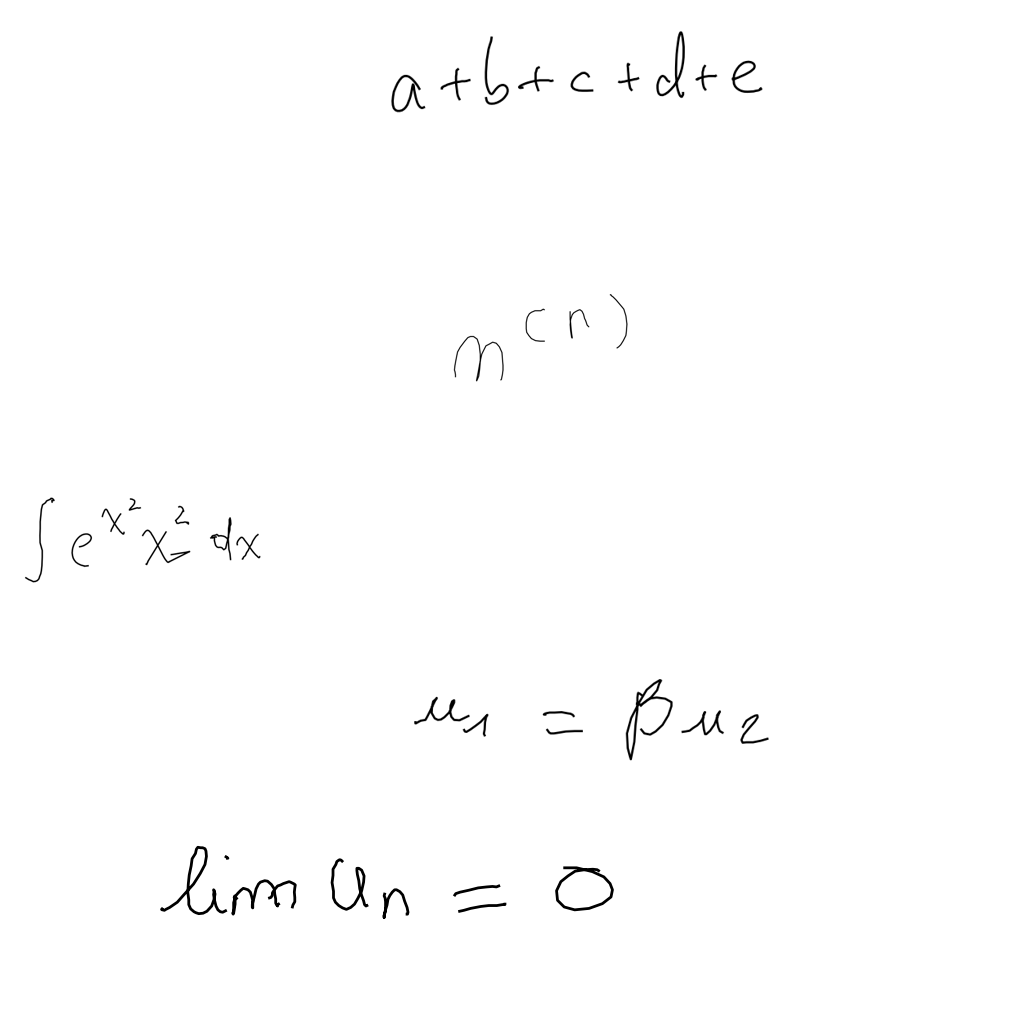 a+b+c+d+e
m^{(n)}
\int e^{x^2} x^2 dx
u_1 = \beta u_2
\lim u_n = 0